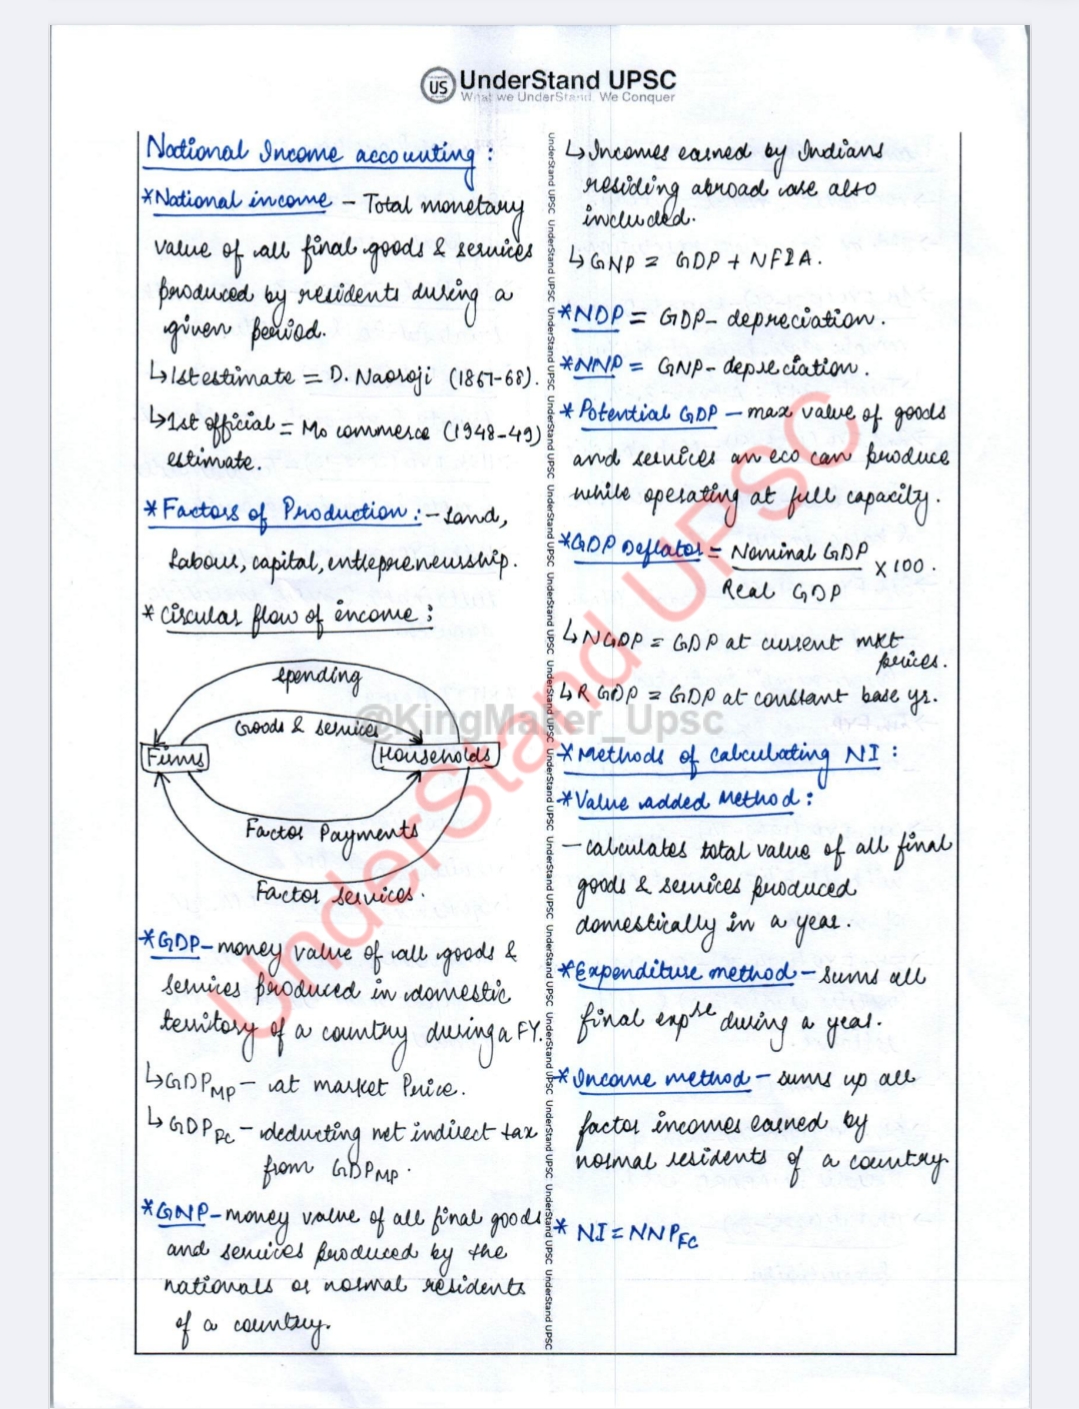 US UnderStand UPSC
What we UnderStand, We Conquer
National Income accounting :
*National income - Total monetary
value of all final goods & services
produced by residents during a
given period.
↳1st estimate = D. Naoroji (1867-68).
↳1st official = Mo commerce (1948-49)
estimate.
*Factors of Production :- Land,
Labour, capital, entrepreneurship.
* Circular flow of income :
spending
Goods & services
Firms
Households
Factor Payments
Factor services.
*GDP - money value of all goods &
services produced in domestic
territory of a country during a FY.
↳GDP MP - at market Price.
↳GDP FC - deducting net indirect tax
from GDP MP.
*GNP - money value of all final goods
and services produced by the
nationals or normal residents
of a country.
↳Incomes earned by Indians
residing abroad are also
included.
↳GNP = GDP + NFIA.
*NDP = GDP - depreciation.
*NNP = GNP - depreciation.
* Potential GDP - max value of goods
and services an eco can produce
while operating at full capacity.
*GDP Deflator = Nominal GDP
x 100.
Real GDP
↳NGDP = GDP at current mkt
prices.
↳R GDP = GDP at constant base yr.
* Methods of calculating NI :
*Value added Method :
- calculates total value of all final
goods & services produced
domestically in a year.
*Expenditure method - sums all
final exp re during a year.
*Income method - sums up all
factor incomes earned by
normal residents of a country
* NI = NNP FC
UnderStand UPSC
@KingMaker_Upsc
UnderStand UPSC UnderStand UPSC UnderStand UPSC UnderStand UPSC UnderStand UPSC UnderStand UPSC UnderStand UPSC UnderStand UPSC UnderStand UPSC UnderStand UPSC UnderStand UPSC UnderStand UPSC UnderStand UPSC UnderStand UPSC